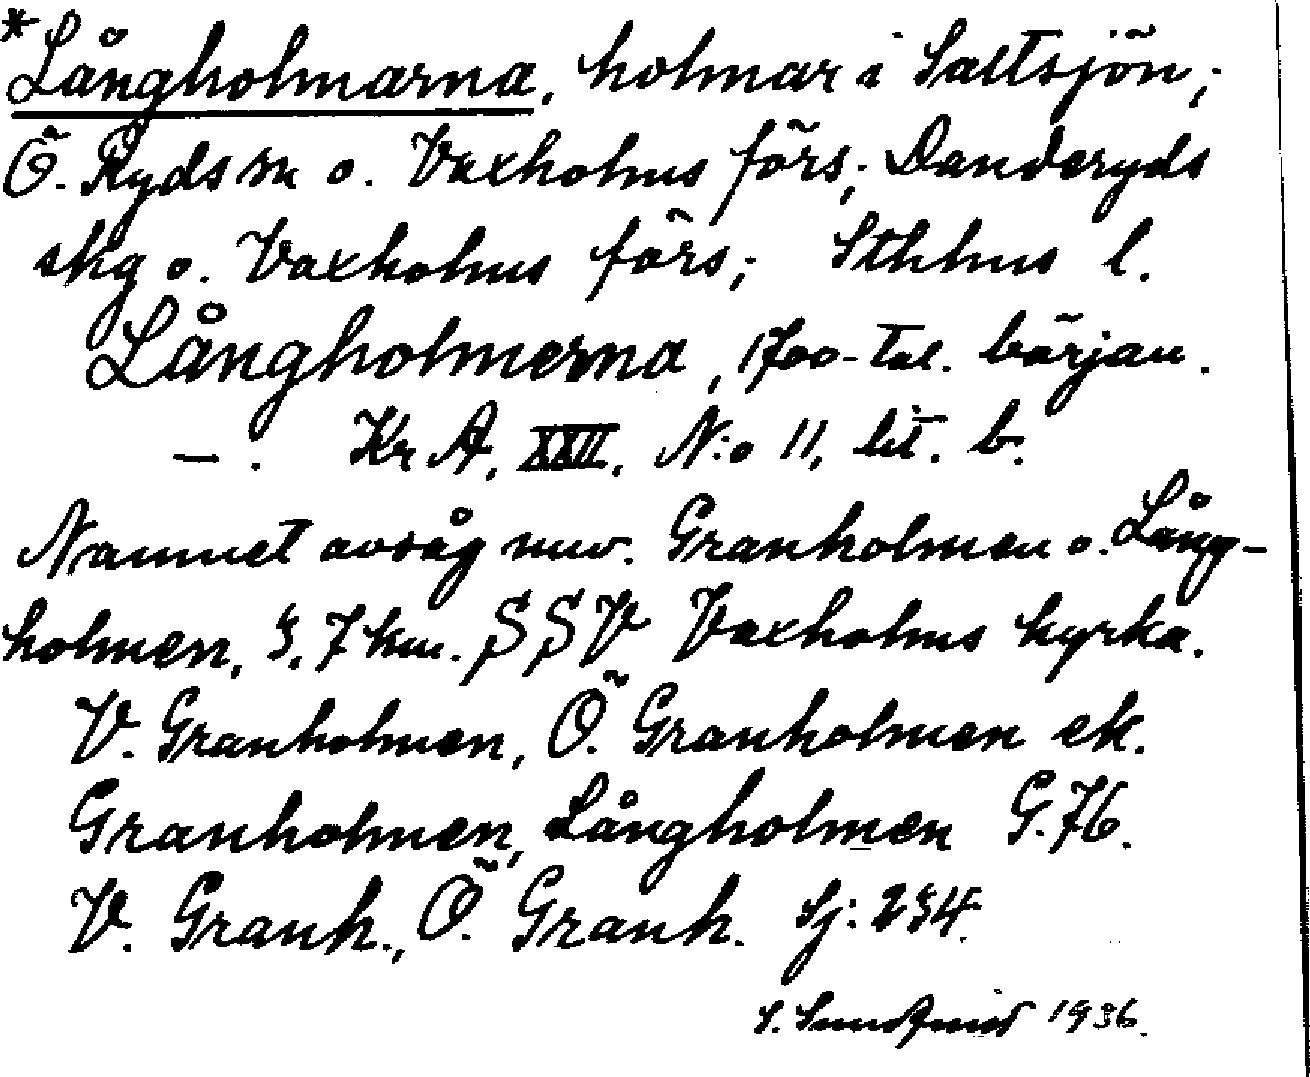 *Långholmarna, holmar i Saltsjön;
Ö. Ryds sn o. Vaxholms förs; Danderyds
skg o. Vaxholms förs; Sthlms l.
Långholmerna, 1700-tal. början.
— . KrA, XXII, N:o 11, lit. b.
Namnet avsåg nuv. Granholmen o. Lång-
holmen, 3,7 km. SSV Vaxholms kyrka.
V. Granholmen, Ö. Granholmen ek.
Granholmen, Långholmen G.76.
V. Granh., Ö. Granh. Sj: 234.
S. 1936.